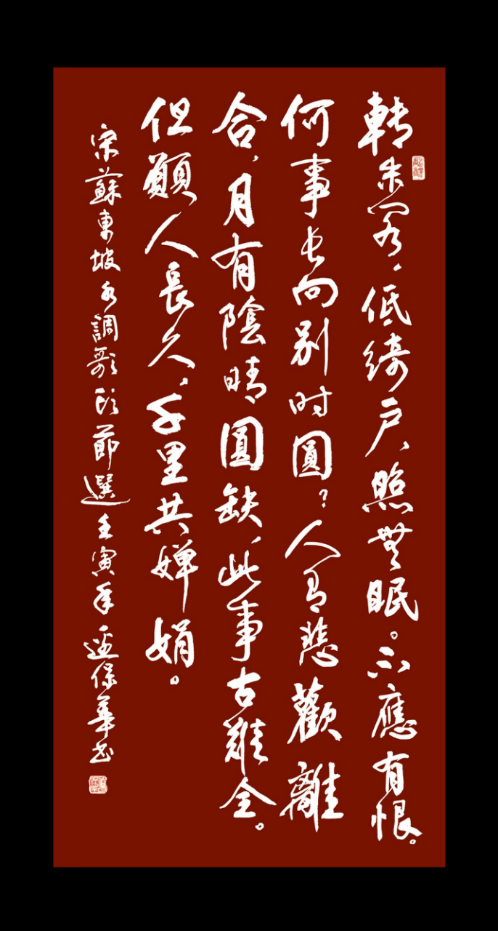 轉朱閣，低綺戶，照無眠。不應有恨。
何事長向别时圓？人有悲歡離
合，月有陰晴圓缺，此事古難全。
但願人長久，千里共嬋娟。
宋蘇東坡水調歌頭節選壬寅年孟保華书